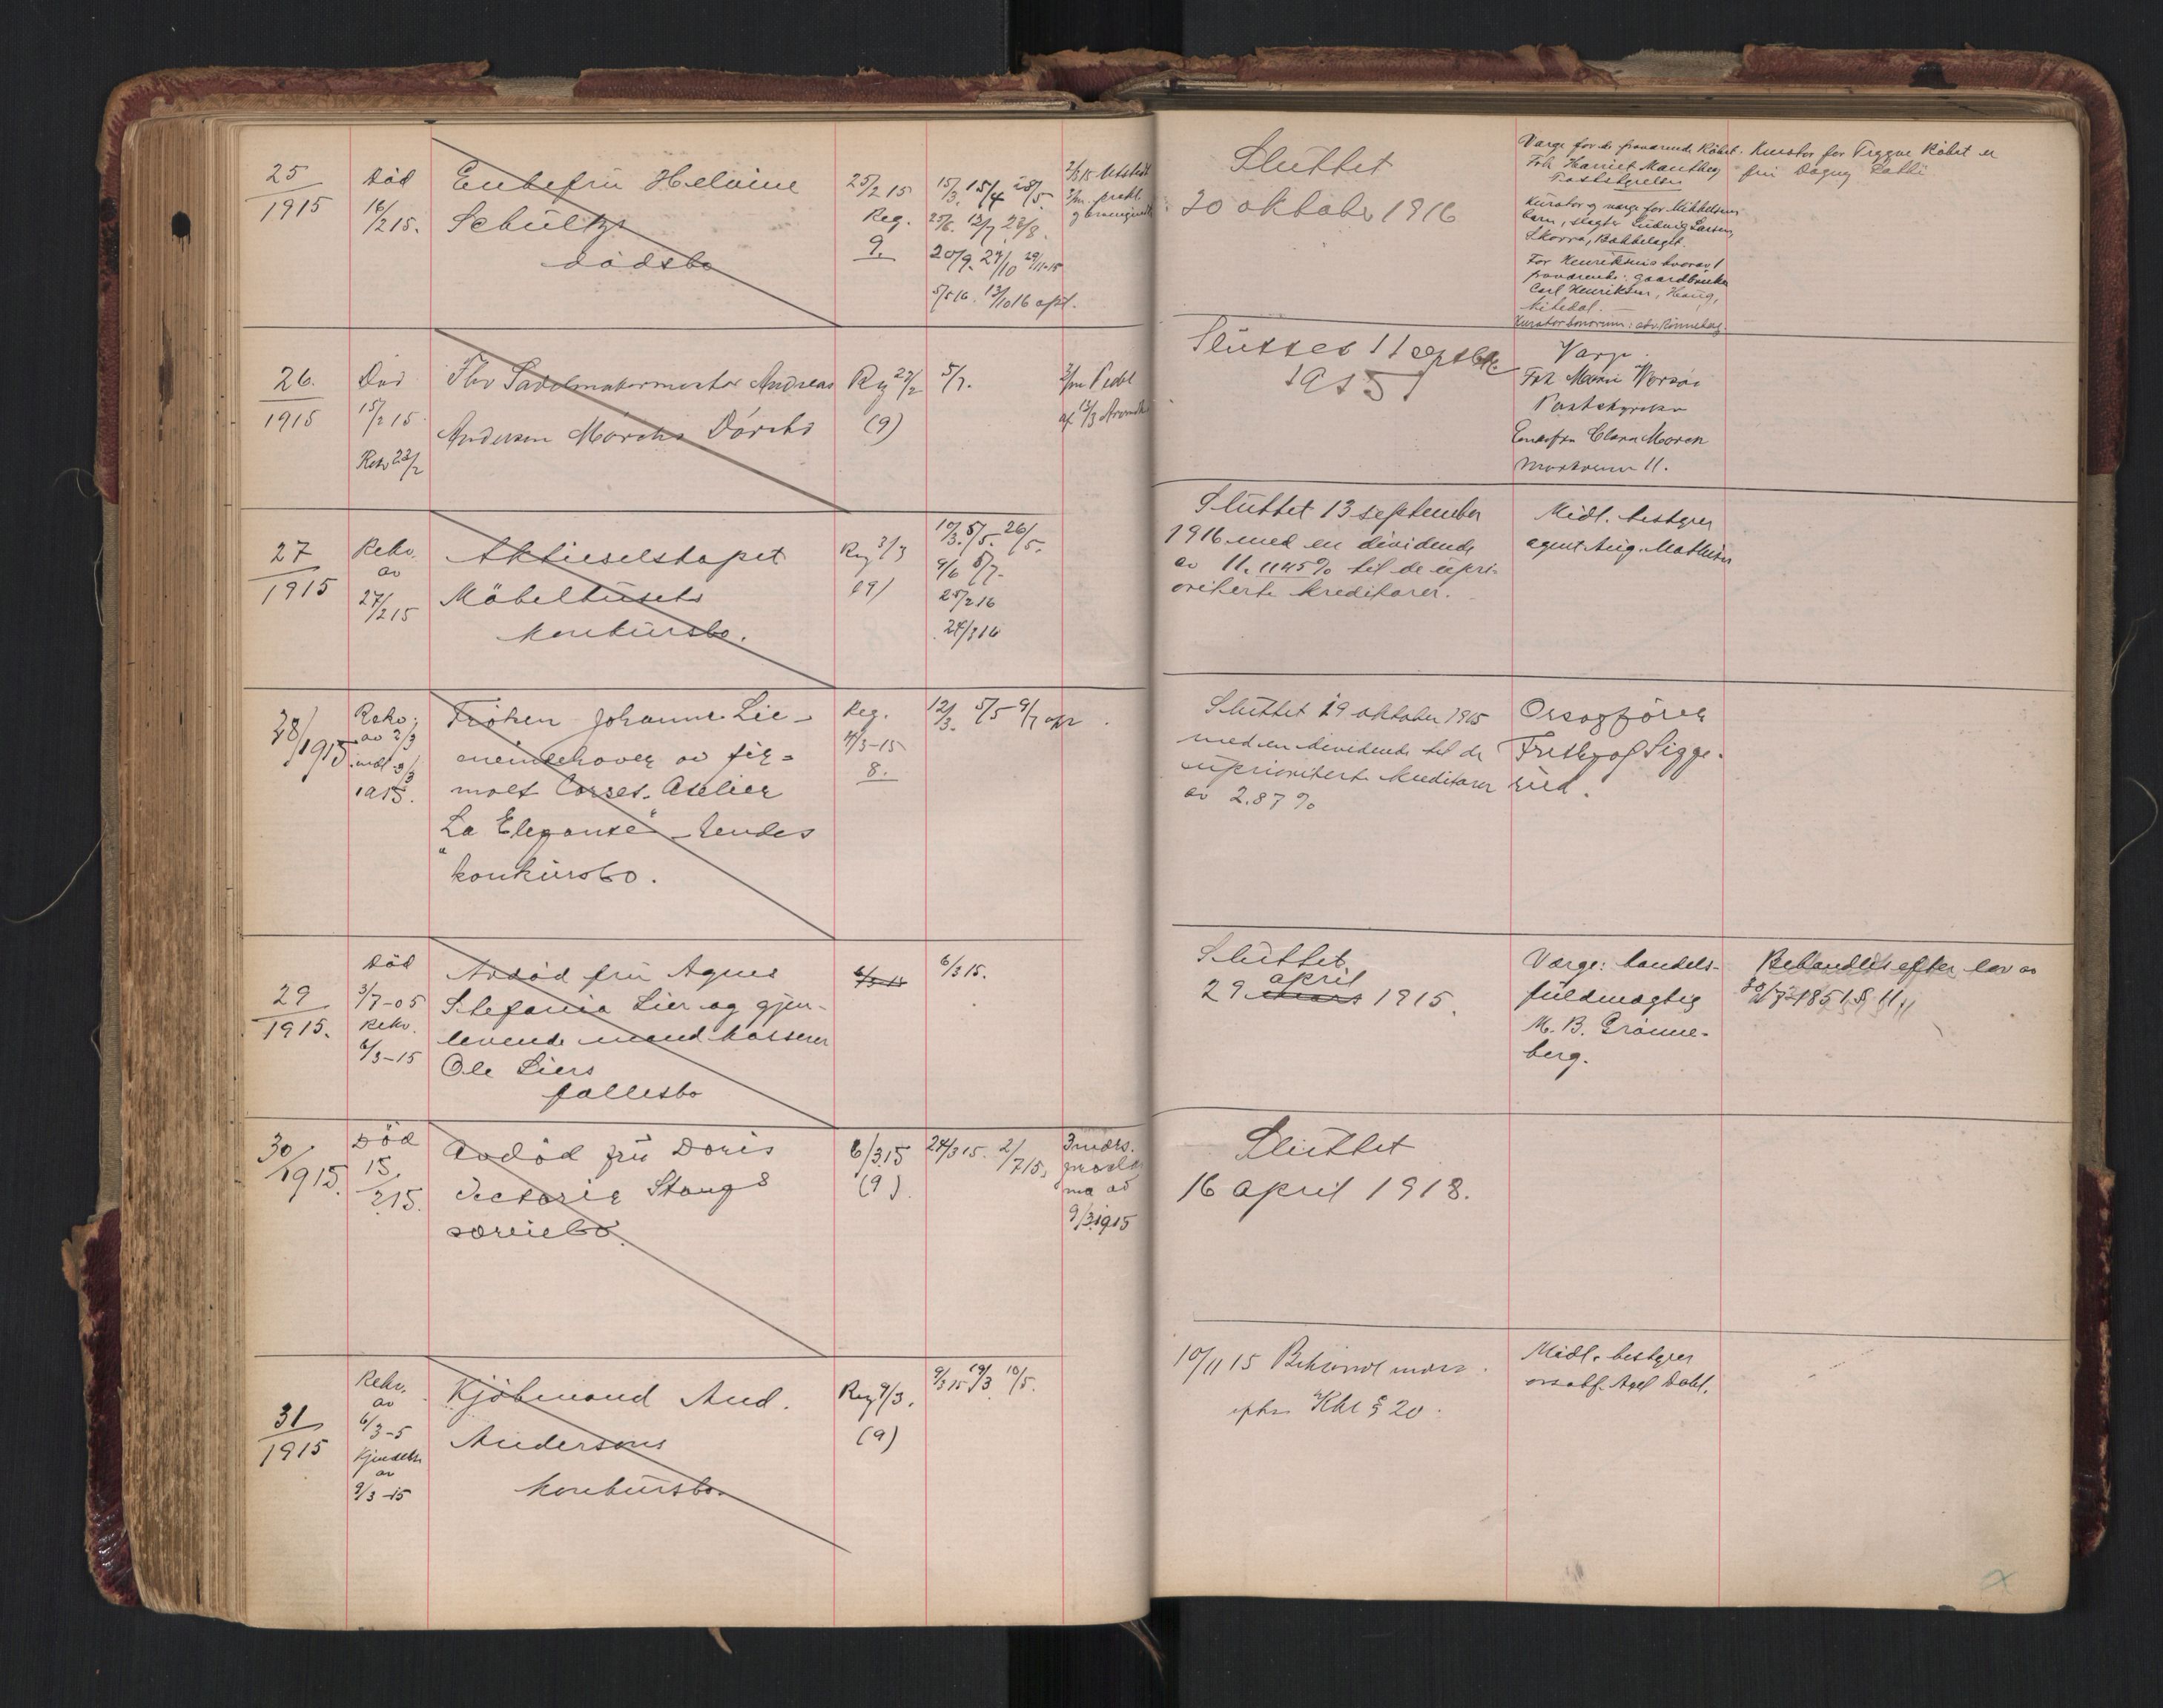 25
1915
Död
16/2 15.
Enkefru Heloine
Schültz
dödsbo
25/2 15
Reg.
9.
15/3. 15/4 28/5.
25/6. 13/7 23/8.
20/9. 29/10 29/11-15
5/5 16. 13/10 16 opt.
Sluttet
20 oktober 1916
Frk Harriet Manthey
Kurator for Trygve Röbit er
fru Dagny
Kurator og værge for Mikkelsens
barn, slagter Ludvig Larsen,
Skorra, Bakkelaget.
For Henriksens hvorav 1
fraværende: gaardbruker
Carl Henriksen, Haug,
Kurator bonorum: adv. Rönneberg.
26.
1915
Död
15/2 15
Rekv 22/2
Fhv Sadelmakermester Andreas
Andersen Mörchs Dödsbo
Reg 23/2
(9)
5/7.
Sluttet 11 septbr
1915
Værge
Frk Marie
Enkefru Clara Morch
27
1915
Rekv.
av
27/2 15
Aktieselskapet
Möbelhusets
konkursbo.
Reg 3/3
(9)
10/3. 5/5. 26/5.
9/6 8/7.
25/2 16
24/3 16
Sluttet 13 september
1916 med en dividende
av 11.1145% til de upri-
oriterte kreditorer.
Midl. bestyrer
agent Aug. Mathisen
28/1915
Rekv.
av 2/3
1915.
Fröken Johanne Lie -
eneindehaver av fir-
maet Corset-Atelier
"La Eleganse" - hendes
konkursbo.
Reg.
4/3-15
8.
12/3. 5/5 9/7 opt.
Sluttet 19 oktober 1915
med en dividende til de
uprioriterte kreditorer
av 2.87%
Orsagförer
Frithjof Sigge-
rud.
29
1915.
Död
3/7-05
Rekv.
6/3-15
Avdöd fru Agnes
Stefania Lier og gjen-
levende mand kasserer
Ole Liers
fællesbo
6/3 15
6/3 15.
Sluttet
april
29 mars 1915.
Værge: handels-
fuldmægtig
M. B. Grönne-
berg.
Behandlet efter lov av
30/7-1851 § 11
30/1915.
Död
15/2 15.
Avdöd fru Doris
Victoria Stangs
særeiebo.
6/3 15
(9).
24/3 15. 2/7 15.
3 mdrs.
prokla
ma av
9/3 1915
Sluttet
16 april 1918.
31
1915
Rekv.
av
6/3-5
Kjendelse
av
9/3-15
Kjöbmand And.
Andersens
konkursbo.
Reg 9/3.
(9)
9/3 15 19/3 10/5.
10/11 15
Kkl § 20.
Midl. bestyrer
orsakf. Axel Dahl.